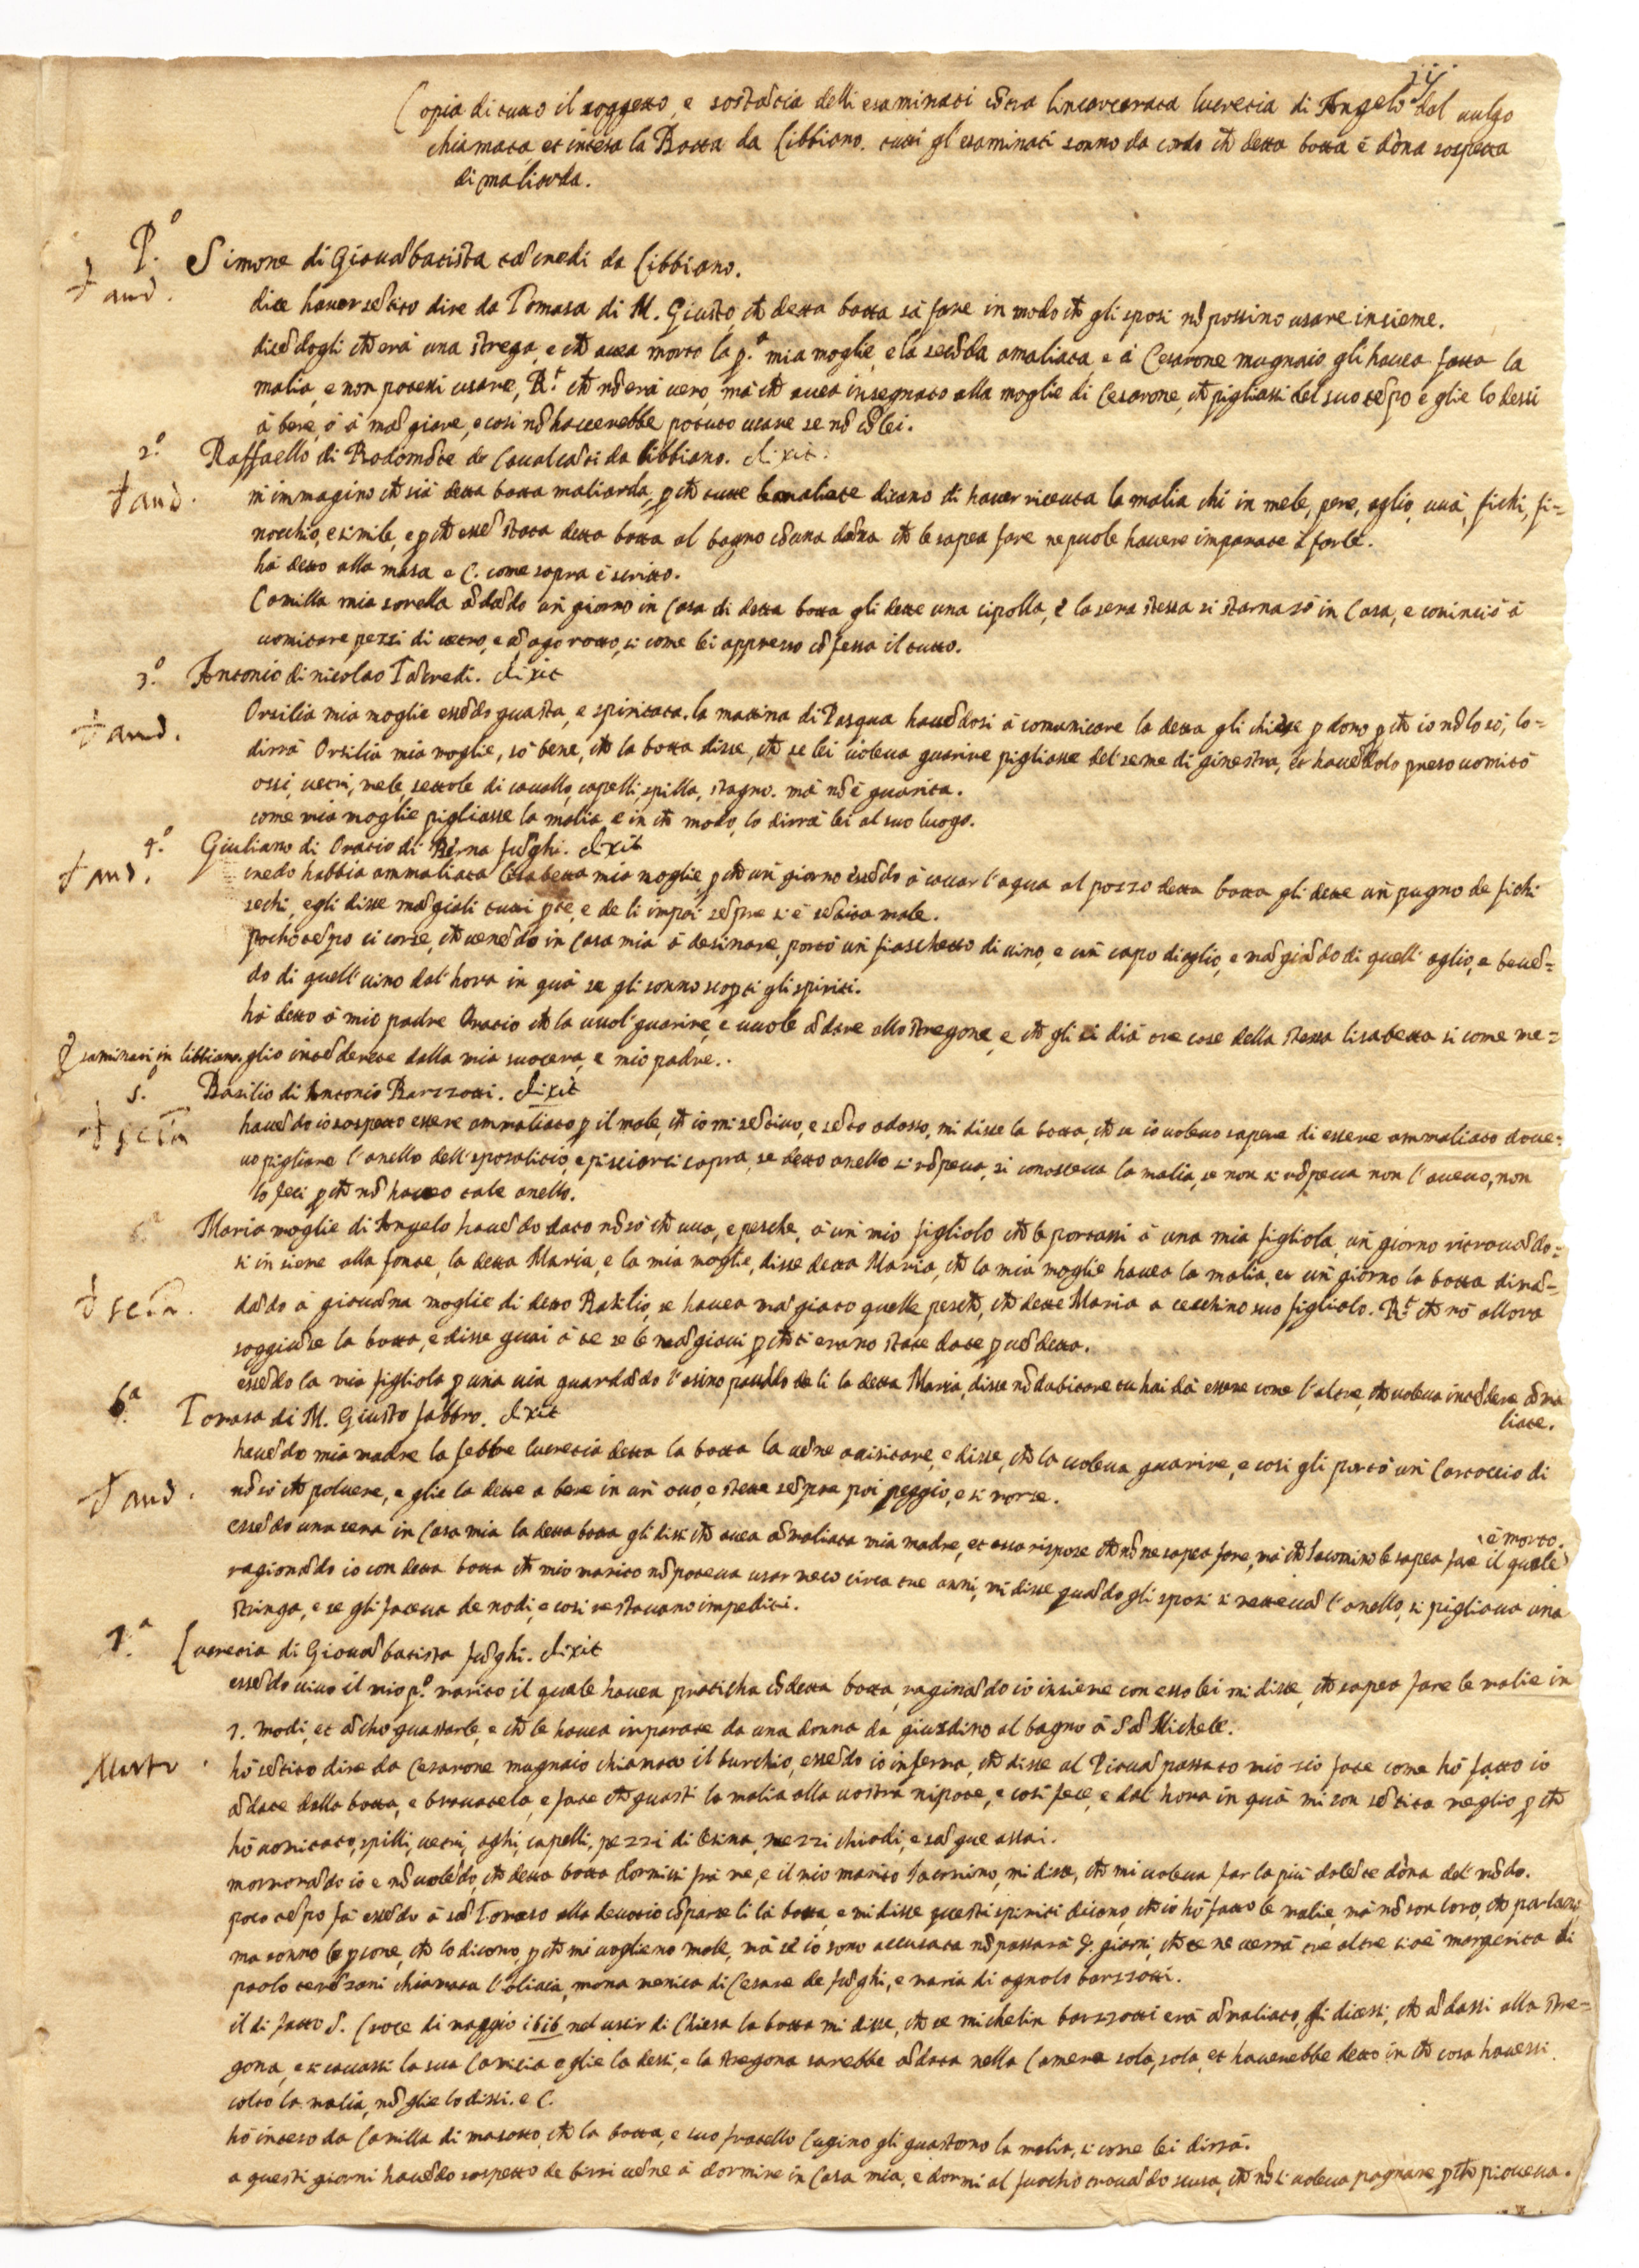 Copia di tutto il soggetto, e sostãtia delli esaminati cõtra lincarcerata lucretia di Angelo dal vulgo
chiamata, et intesa la Botta da Libbiano. tutti gl'esaminati sonno da cordo ch̃ detta botta è dõna sospetta
di maliarda.
P.º Simone di Giovãbatista tãcredi da Libbiano.
† aud.
dice haver sẽtito dire da Tomasa di M. Giusto, ch̃ detta botta sà fare in modo ch̃ gli sposi nõ possino usare insieme.
dicẽdogli ch̃ erà una strega, e ch̃ avea morto la p.ª mia moglie, e la secõda amaliata, e à Cesarone mugnaio gli havea fatta la
malia, e non potessi usare, R.t ch̃ nõ erà vero, mà ch̃ avea insegnato alla moglie di Cesarone, ch̃ pigliassi del suo tẽpo e glie lo dessi
à bere, ò à mãgiare, e cosi nõ haverebbe potuto usare se nõ cõ lei.
2.º Raffaello di Rodomõte de Cavalcãti da libbiano. dixit.
† aud.
m'immagino ch̃ sià detta botta maliarda, p ch̃ tutte le maliate dicano di haver ricevta la malia chi in mele, pere, aglio, uuà, fichi, fi=
nocchio, e simile, e p ch̃ essẽ stata detta botta al bagno cõ una dõna ch̃ le sapea fare ne puole havere imparate à farle.
hà detto alla masa e C. come sopra è scritto.
Camilla mia sorella ãdãdo uñ giorno in Casa di detta botta gli dette una cipolla, e la sera stessa si starnazò in Casa, e cominciò à
vomitare pezzi di vetro, e uñ ago rotto, si come lei appresso cõfessa il tutto.
3.º Antonio di nicolao Tãcredi. dixit
† aud.
Orsilia mia moglie essẽdo guasta, e spiritata. la mattina di Pasqua havẽdosi à comunicare la detta gli chiese p dono p ch̃ io nõ lo sò, lo=
dirrà Orsilia mia moglie, sò bene, ch̃ la botta disse, ch̃ se lei voleva guarire pigliasse del seme di ginestra, et havẽdolo preso vomitò
ossi, vetri, mele, settole di cavallo, capelli, spilla, stagno. mà nõ è guarita.
come mia moglie pigliasse la malia e in ch̃ modo, lo dirrà lei al suo luogo.
4.º Giuliano di Oratio di Berna fũghi. dixit
† aud.
credo habbia ammaliata Lisabetta mia moglie, p ch̃ uñ giorno essẽdo à cavar l'aqua al pozzo detta botta gli dette uñ pugno de fichi
sechi, e gli disse mãgiali tutti p te, e de li impoi sẽpre si è sẽtita male.
pocho tẽpo ci corse, ch̃ venẽdo in Casa mia à desinare, portò uñ fiaschetto di vino, e uñ capo d'aglio, e mãgiãdo di quell'aglio, e bevẽ=
do di quell'vino dal'hora in quà se gli sonno scopti gli spiriti.
hà detto à mio padre Oratio ch̃ la vuol guarire, e vuole ãdare allo stregone, e ch̃ gli si dià tre cose della stessa lisabetta si come me=
Esaminati, in libbiano. glio intẽderete dalla mia suocera, e mio padre.
5.º Basilio di Antonio Barzzotti. dixit
† scia
havẽdo io sospetto essere ammaliato p il male, ch̃ io mi sẽtivo, e sẽto adosso, mi disse la botta, ch̃ se io volevo sapere di essere ammaliato dove=
vo pigliare l'anello dell'sposalitio, e pisciarci sopra, se detto anello si rõpeva, si conosceva la malia, se non si rõpeva non l'avevo, non
lo feci p ch̃ nõ havevo tale anello.
Maria moglie di Angelo havẽdo dato nõ sò ch̃ uva, e pesche, à uñ mio figliolo ch̃ le portassi à una mia figliola, uñ giorno ritrovãdo=
si insieme alla fonte, la detta Maria, e la mia moglie, disse detta Maria, ch̃ la mia moglie havea la malia, et uñ giorno la botta dimã=
† scia.
dãdo à giovãna moglie di detto Basilio, se havea mãgiato quelle pesch̃, ch̃ dette Maria a cecchino suo figliolo. R.t ch̃ nò allora
soggiũse la botta, e disse guai à te se le mãgiavi p ch̃ ti erano state date p vẽdetta.
essẽdo la mia figliola p una via guardãdo l'asino passãdo da li la detta Maria, disse nõ dubitare tu hai dà essere come l'altre, ch̃ voleva intẽdere ãma
liate.
6.ª Tomasa di M. Giusto fabbro. dixit
havẽdo mia madre la febbre lucretia detta la botta la vẽne avisitare, e disse, ch̃ la voleva guarire, e cosi gli portò uñ Cartoccio di
† aud.
nõ sò ch̃ polvere, e glie la dette a bere in uñ ovo, e stette sẽpre poi peggio, e si morse.
essẽdo una sera in Casa mia la detta botta gli dissi ch̃ avea ãmaliata mia madre, et essa rispose ch̃ nõ ne sapea fare, mà ch̃ Iacomino le sapea fare il quale
è morto.
ragionãdo io con detta botta ch̃ mio marito nõ poteva usar meco circa tre anni, mi disse quãdo gli sposi si mettevã l'anello, si pigliava una
stringa, e se gli faceva de nodi, e cosi restavano impediti.
7.ª Lucretia di Giovãbatista fũghi. dixit
essẽdo vivo il mio p.º marito il quale havea praticha cõ detta botta, raginãdo io insieme con esso lei mi disse, ch̃ sapea fare le malie in
7. modi, et ãcho guastarle, e ch̃ le havea imparate da una donna da giusdino al bagno à Sã Michele.
hò sẽtito dire da Cesarone mugnaio chiamato il burchio, essẽdo io inferma, ch̃ disse al Piovã passato mio zio fate come hò fatto io
ãdate dalla botta, e bravatela, e fate ch̃ guasti la malia alla vostra nipote, e cosi fece, e dal hora in quà mi son sẽtita meglio p ch̃
hò vomitato, spilli, vetri, aghi, capelli, pezzi di lesina, mezzi chiodi, e sãgue assai.
mormorãdo io e nõ volẽdo, ch̃ detta botta dormissi frà me, e il mio marito Iacomino, mi disse, ch̃ mi voleva far la più dolẽte dõna del mõdo.
poco tẽpo fà essẽdo à sã Tomaso alla devotio cõparse li la botta, e mi disse questi spiriti dicono, ch̃ io hò fatto le malie, mà nõ son loro, ch̃ parlano
ma sonno le psone, ch̃ lo dicono, p ch̃ mi vogliano male, mà se io sono accusata nõ passarà 8. giorni, ch̃ te ne verrà tre altre cioè margerita di
paolo terõzani chiamata l'oliaia, mona menica di Cesare de fũghi, e maria di agnolo barzzotti.
il di fatto S. Croce di maggio 1616 nel uscir di Chiesa la botta mi disse, ch̃ se michelin barzzotti erà ãmaliato, gli dicessi, ch̃ ãdassi alla stre=
gona, e si cavassi la sua Camicia e glie la dessi, e la stregona sarebbe ãdata nella Camera sola, sola, et haverebbe detto in ch̃ cosa havessi
colto la malia, nõ glie lo dissi. e C.
hò inteso da Camilla di masotto, ch̃ la botta, e suo fratello Cugino gli guastorno la malia, si come lei dirrà.
a questi giorni havẽdo sospetto de birri vẽne à dormire in Casa mia, e dormì al fuocho trovãdo scusa, ch̃ nõ si voleva pagnare p ch̃ pioveva.